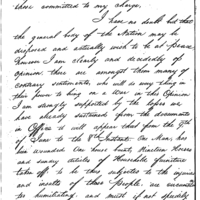 those committed to my charge.
I have no doubt but that
the general body of the Nation may be
disposed and actually wish to be at peace
however I am clearly and decidedly of
opinion there are amongst them many of
contrary sentiments, who will do every thing in
their power to bring on a War in this Opinion
I am strongly supported by the
have already sustained from the documents
in Office it will appear that from the 9th
of June to the 8th Instant. One Man has
been wounded One house burnt, Nineteen Horses
and sundry articles of Household furniture
taken off to be thus subjected to the injuries
and insults of these People, are
too humiliating, and must if not speedily